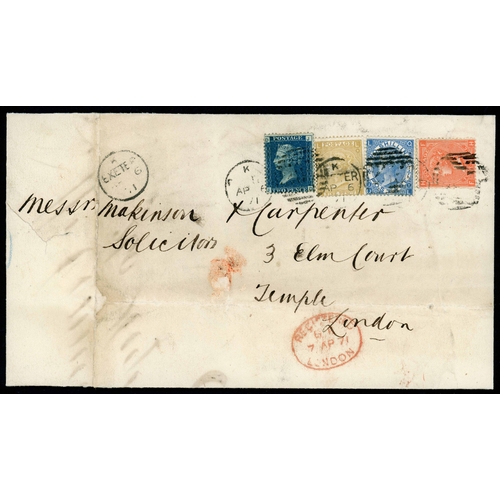 POSTAGE
EXETER
6
71
K
AP 6
71
K
ER
AP 6
71
Messrs Makinson & Carpenter
Solicitors
3 Elm Court
Temple
London
REGISTERED
7 AP 71
LONDON